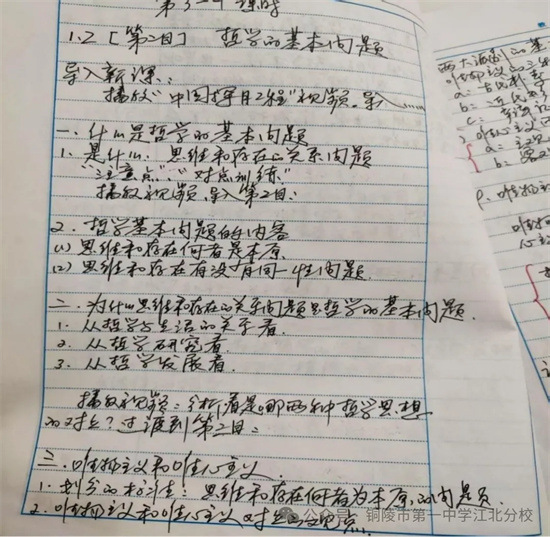 第3-4课时
1.2 [第二目] 哲学的基本问题
导入新课:
播放"中国探月工程"视频.导入……
一.什么是哲学的基本问题
1.是什么.思维和存在的关系问题
"注意点"."对点训练."
播放视频.导入第2目:
2.哲学基本问题的内容
(1)思维和存在何者是本原.
(2)思维和存在有没有同一性问题.
二.为什么思维和存在的关系问题是哲学的基本问题.
1.从哲学与生活的关系看.
2.从哲学研究看.
3.从哲学发展看.
播放视频:分析看是哪两种哲学思想
的对立?过渡到第二目:
三.唯物主义和唯心主义.
1.划分的标准:思维和存在何者为本原的问题.
2.唯物主义和唯心主义对立的观点.
两大派别的基
唯物论的三
a:古代朴素
b:近代形
唯心主义
a:主观
b:
公众号·铜陵市第一中学江北分校